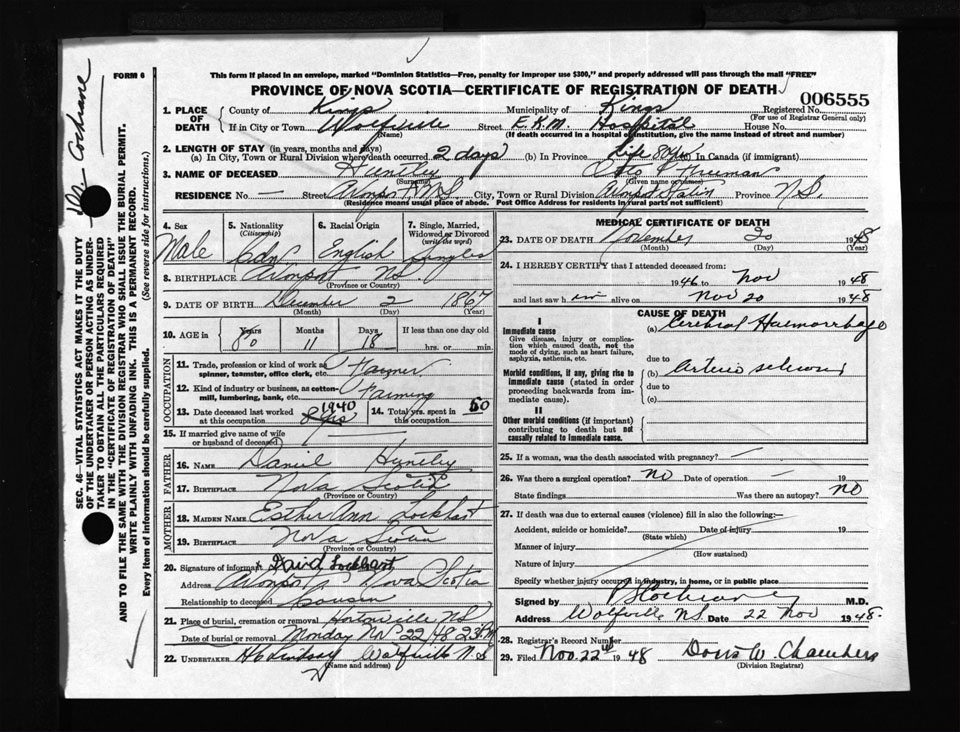 Dr. Cochrane
FORM 6
This form if placed in an envelope, marked "Dominion Statistics—Free, penalty for improper use $300," and properly addressed will pass through the mail "FREE"
PROVINCE OF NOVA SCOTIA—CERTIFICATE OF REGISTRATION OF DEATH
006555
1. PLACE OF DEATH County of Kings Municipality of Kings Registered No.
(For use of Registrar General only)
If in City or Town Wolfville Street E.K.M. Hospital House No.
(Name) (If death occurred in a hospital or institution, give the name instead of street and number)
2. LENGTH OF STAY (in years, months and days)
(a) In City, Town or Rural Division where death occurred 2 days (b) In Province Life 80 yrs (c) In Canada (if immigrant)
3. NAME OF DECEASED Huntley Freeman
(Surname) (Given name or names)
RESIDENCE No. Street Avonport N.S. City, Town or Rural Division Avonport Province N.S.
(Residence means usual place of abode. Post Office Address for residents in rural parts not sufficient)
4. Sex Male
5. Nationality (Citizenship) Cdn
6. Racial Origin English
7. Single, Married, Widowed or Divorced (write the word) Single
8. BIRTHPLACE Avonport N.S.
(Province or Country)
9. DATE OF BIRTH December 2 1867
(Month) (Day) (Year)
10. AGE in Years 80 Months 11 Days 18 If less than one day old hrs. or min.
OCCUPATION
11. Trade, profession or kind of work as spinner, teamster, office clerk, etc. Farmer
12. Kind of industry or business, as cotton-mill, lumbering, bank, etc. Farming
13. Date deceased last worked at this occupation 1940
14. Total yrs. spent in 60
15. If married give name of wife or husband of deceased
FATHER
16. NAME Daniel Huntley
17. BIRTHPLACE Nova Scotia
(Province or Country)
MOTHER
18. MAIDEN NAME Esther Ann Lockhart
19. BIRTHPLACE Nova Scotia
(Province or Country)
20. Signature of informant David Lockhart
Address Avonport Nova Scotia
Relationship to deceased Cousin
21. Place of burial, cremation or removal Hortonville NS
Date of burial or removal Monday Nov 22/48
22. UNDERTAKER Lindsay Wolfville N.S
(Name and address)
MEDICAL CERTIFICATE OF DEATH
23. DATE OF DEATH November 20 1948
(Month) (Day) (Year)
24. I HEREBY CERTIFY that I attended deceased from:
1946 to Nov 1948
and last saw him alive on Nov 20 1948
CAUSE OF DEATH
I
Immediate cause
Give disease, injury or complication which caused death, not the mode of dying, such as heart failure, asphyxia, asthenia, etc.
(a) Cerebral Haemorrhage
due to
Morbid conditions, if any, giving rise to immediate cause (stated in order proceeding backwards from immediate cause).
(b) Arterio sclerosis
due to
(c)
II
Other morbid conditions (if important) contributing to death but not causally related to immediate cause.
25. If a woman, was the death associated with pregnancy? —
26. Was there a surgical operation? No Date of operation — 19
State findings Was there an autopsy? NO
27. If death was due to external causes (violence) fill in also the following:—
Accident, suicide or homicide? Date of injury 19
(State which)
Manner of injury
(How sustained)
Nature of injury
Specify whether injury occurred in industry, in home, or in public place
Signed by Cochrane M.D.
Address Wolfville N.S. Date 22 Nov 1948
28. Registrar's Record Number
29. Filed Nov. 22nd 1948 Doris W. Chambers
(Division Registrar)
SEC. 46—VITAL STATISTICS ACT MAKES IT THE DUTY
OF THE UNDERTAKER OR PERSON ACTING AS UNDER-
TAKER TO OBTAIN ALL THE PARTICULARS REQUIRED
IN THE "CERTIFICATE OF REGISTRATION OF DEATH"
AND TO FILE THE SAME WITH THE DIVISION REGISTRAR WHO SHALL ISSUE THE BURIAL PERMIT.
WRITE PLAINLY WITH UNFADING INK. THIS IS A PERMANENT RECORD.
Every item of information should be carefully supplied. (See reverse side for instructions.)